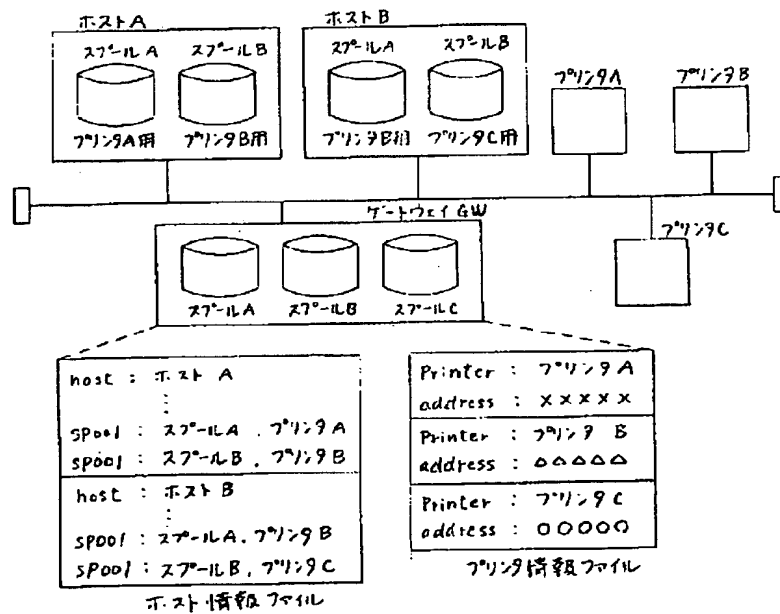 ホストA
ホストB
スプールA スプールB
プリンタA用 プリンタB用
スプールA スプールB
プリンタB用 プリンタC用
プリンタA
プリンタB
ゲートウェイGW
プリンタC
スプールA スプールB スプールC
host : ホスト A
⋮
spool : スプールA , プリンタA
spool : スプールB , プリンタB
host : ホスト B
⋮
spool : スプールA , プリンタB
spool : スプールB , プリンタC
ホスト情報ファイル
Printer : プリンタA
address : ×××××
Printer : プリンタ B
address : △△△△△
Printer : プリンタC
address : ○○○○○
プリンタ情報ファイル